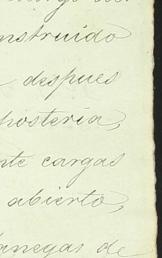 nstruido
despues
posteria,
nte cargas
abierto,
anegas de